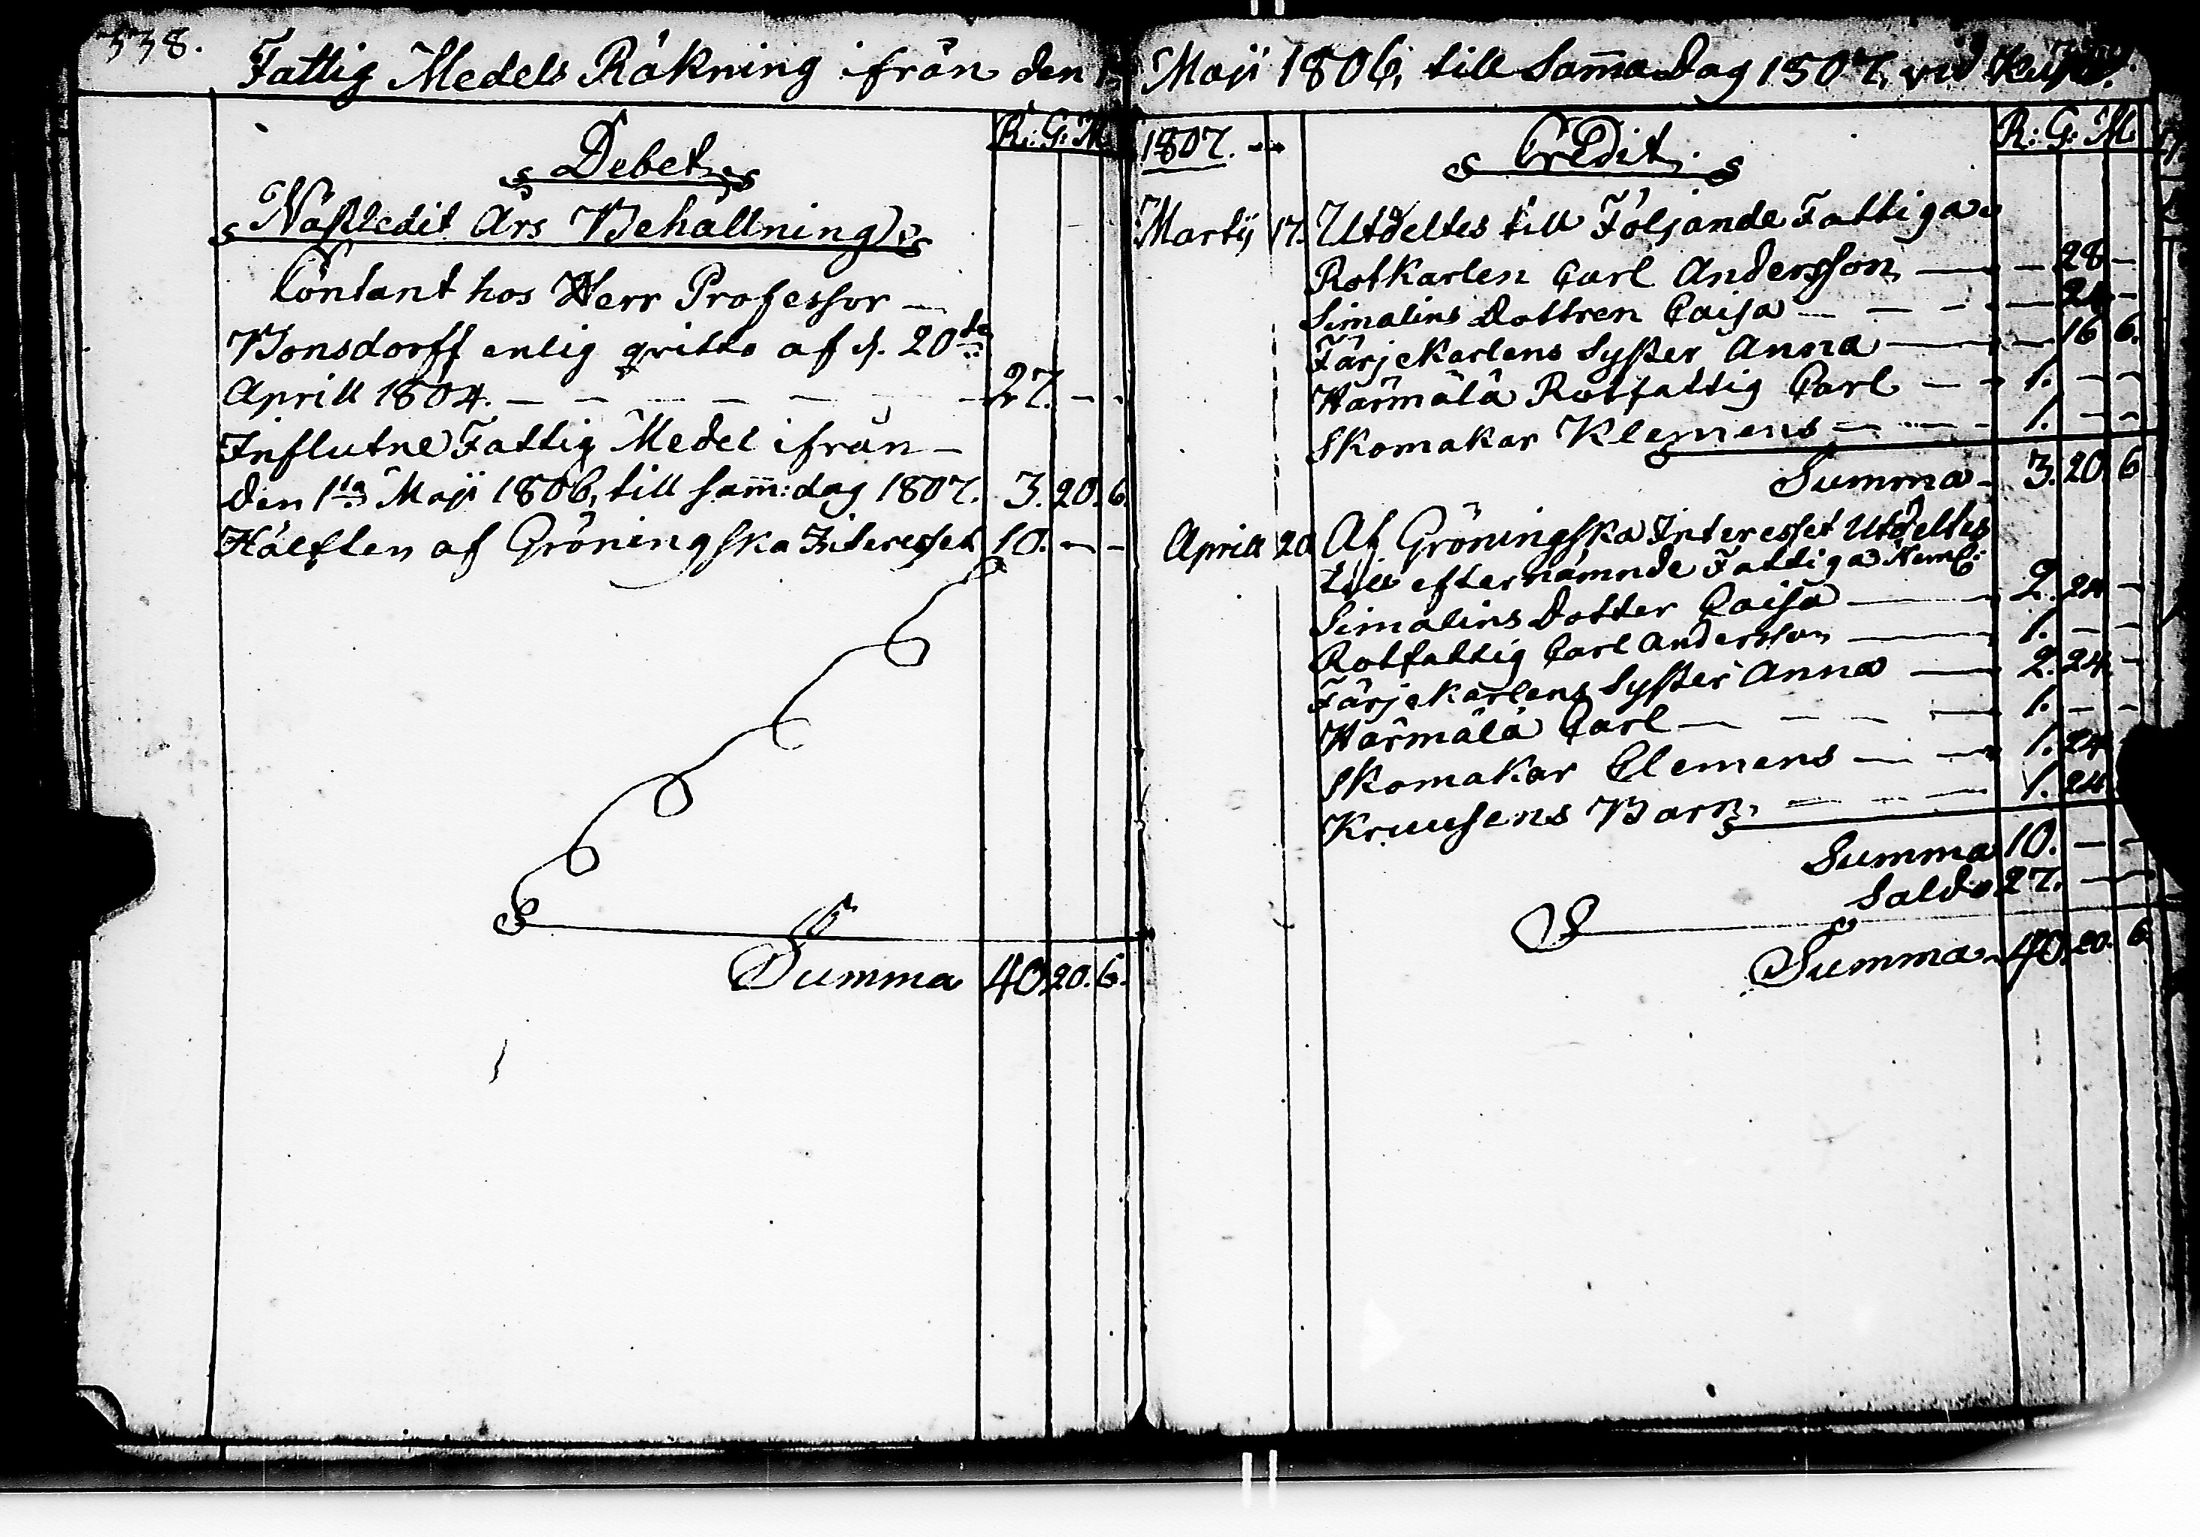 338.
Fattig Medels Räkning ifrån den 1 Maji 1806, till samma Dag 1807, vid
Debet
R: G: M
Nästledit Års Behållning
Contant hos Herr Professor —
Bonsdorff enlig qvitto af d. 20de
Aprill 1804. — — — — — 27. — -
Influtne Fattig Medel ifrån —
den 1sta Maji 1806, till sam̄: dag 1807. 3. 20. 6.
Hälften af Gröningska Interesset 10. — -
Summa 40. 20. 6.
1807. - -
Credit.
R: G: M
Martij 17. Utdeltes till Följande Fattiga
Rotkarlen Carl Andersson — — 28 —
Simalins Dottren Caisa — — — — 24 —
Färjekarlens Syster Anna — — 16 6.
Härmälä Rotfattig Carl — — 1. — —
Skomakar Klemens — — — 1. — —
Summa — 3. 20. 6
Aprill 20 Af Gröningska Interesset Utdeltes
till efternämnde Fattiga Neml:
Simalins Dotter Caisa — 2. 24 —
Rotfattig Carl Andersson — 1. — —
Färjekarlens Syster Anna — 2. 24. —
Härmälä Carl — — — — 1. — —
Skomakar Clemens — — — 1. 24
Kruusens Barn — — — 1. 24
Summa 10. — —
Saldo 27. — —
Summa 40. 20. 6